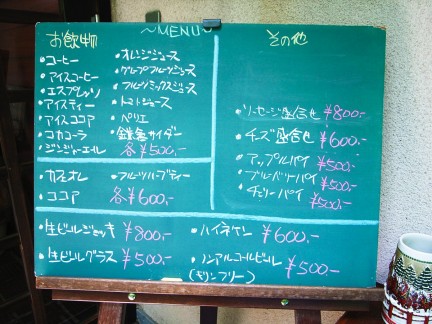 〜MENU〜
お飲物
・コーヒー
・アイスコーヒー
・エスプレッソ
・アイスティー
・アイスココア
・コカコーラ
・ジンジャーエール
・オレンジジュース
・グレープフルーツジュース
・フルーツミックスジュース
・トマトジュース
・ペリエ
・鎌倉サイダー
各¥500,-
・カフェオレ
・ココア
・フルーツハーブティー
各¥600,-
その他
・ソーセージ盛合せ ¥800,-
・チーズ盛合せ ¥600,-
・アップルパイ ¥500,-
・ブルーベリーパイ ¥500,-
・チェリーパイ ¥500,-
・生ビールジョッキ ¥800,-
・生ビールグラス ¥500,-
・ハイネケン ¥600,-
・ノンアルコールビール ¥500,-
(キリンフリー)